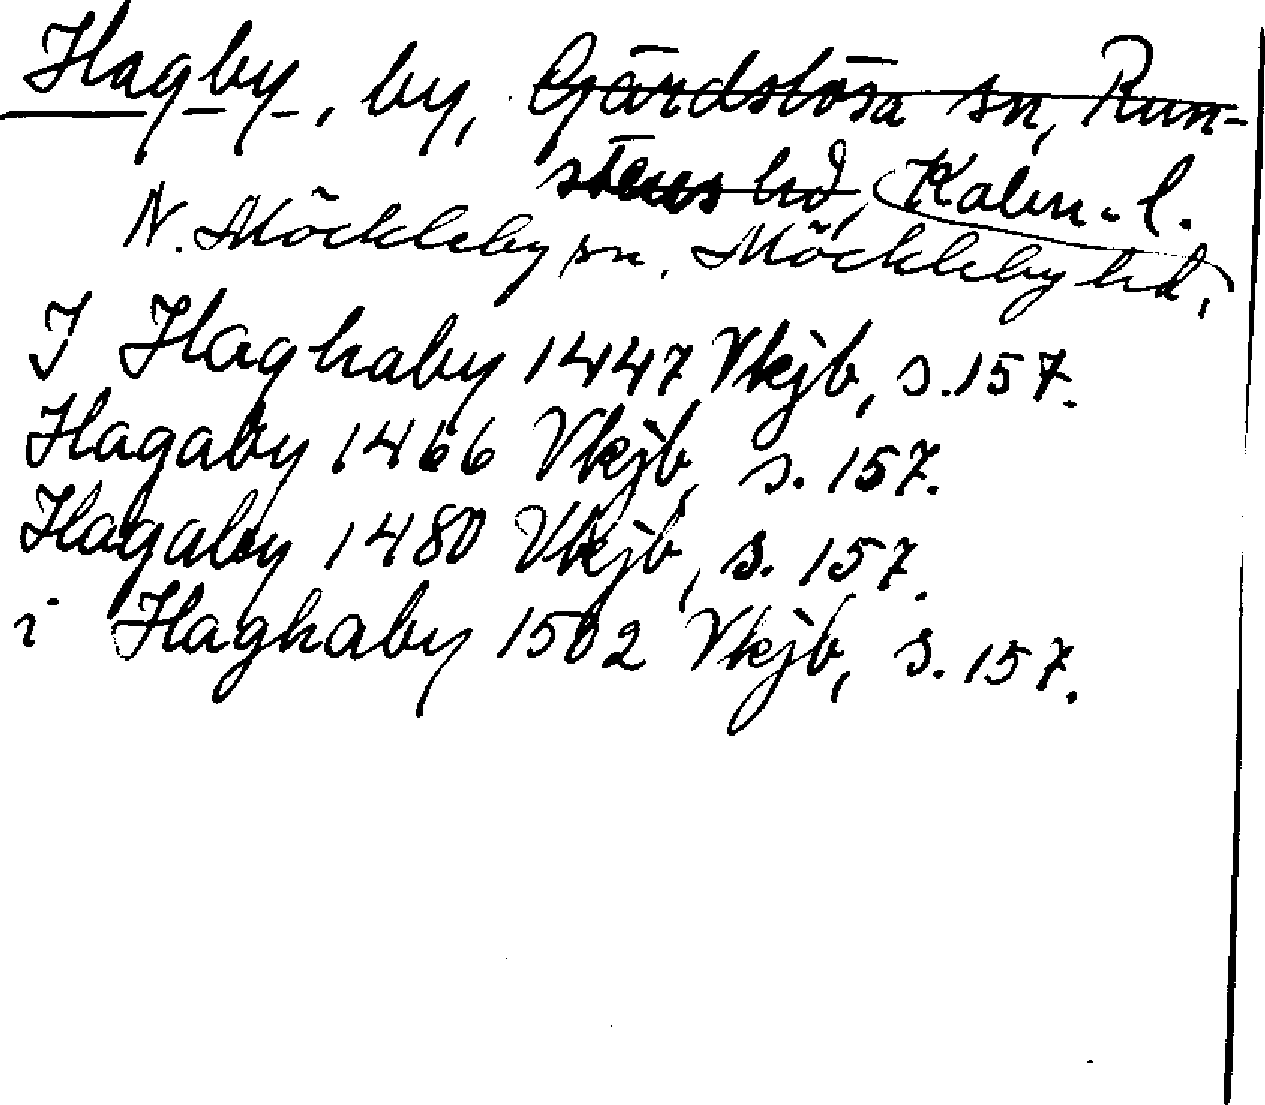 Hagby, by, Gärdslösa sn, Run-
stens hd, Kalm. l.
N. Möckleby sn. Möckleby hd,
J Haghaby 1447 Vkjb, s. 157.
Hagaby 1466 Vkjb, s. 157.
Hagaby 1480 Vkjb, s. 157.
i Haghaby 1502 Vkjb, s. 157.